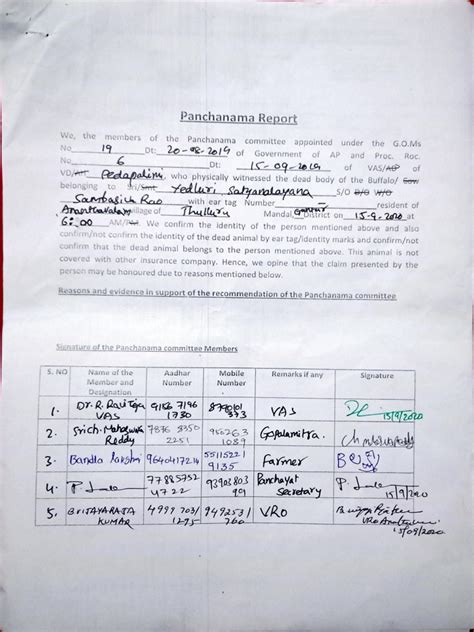 Panchanama Report
We, the members of the Panchanama committee appointed under the G.O.Ms
No 19 Dt: 20-08-2019 of Government of AP and Proc. Roc.
No 6 Dt: 15-09-2019 of VAS/AD of
VD/AH Pedapalem, who physically witnessed the dead body of the Buffalo/ Cow
belonging to Sri/Smt Yedluri Satyanarayana S/O D/O W/O
Sambasiva Rao with ear tag Number resident of
Ananthavaram village of Thulluru Mandal, Guntur District on 15-9-2020 at
6:00 AM/PM We confirm the identity of the person mentioned above and also
confirm/not confirm the identity of the dead animal by ear tag/identity marks and confirm/not
confirm that the dead animal belongs to the person mentioned above. This animal is not
covered with other insurance company. Hence, we opine that the claim presented by the
person may be honoured due to reasons mentioned below.
Reasons and evidence in support of the recommendation of the Panchanama committee
Signature of the Panchanama committee Members
S. NO Name of the Member and Designation Aadhar Number Mobile Number Remarks if any Signature
1. Dr. R. Ravi Teja VAS 9156 7196 1730 VAS 15/9/2020
2. Reddy 7876 8350 2251 1089 Gopalamitra.
3. Bandla 9640417214 55115221 9135 Farmer
4. P. 77885752 47 93903803 99 Panchayat Secretary P. 15/9/2020
5. B. VIJAYARAJA KUMAR 4999 703/ 1275 9492531/ 760 VRO VRO 15/09/2020